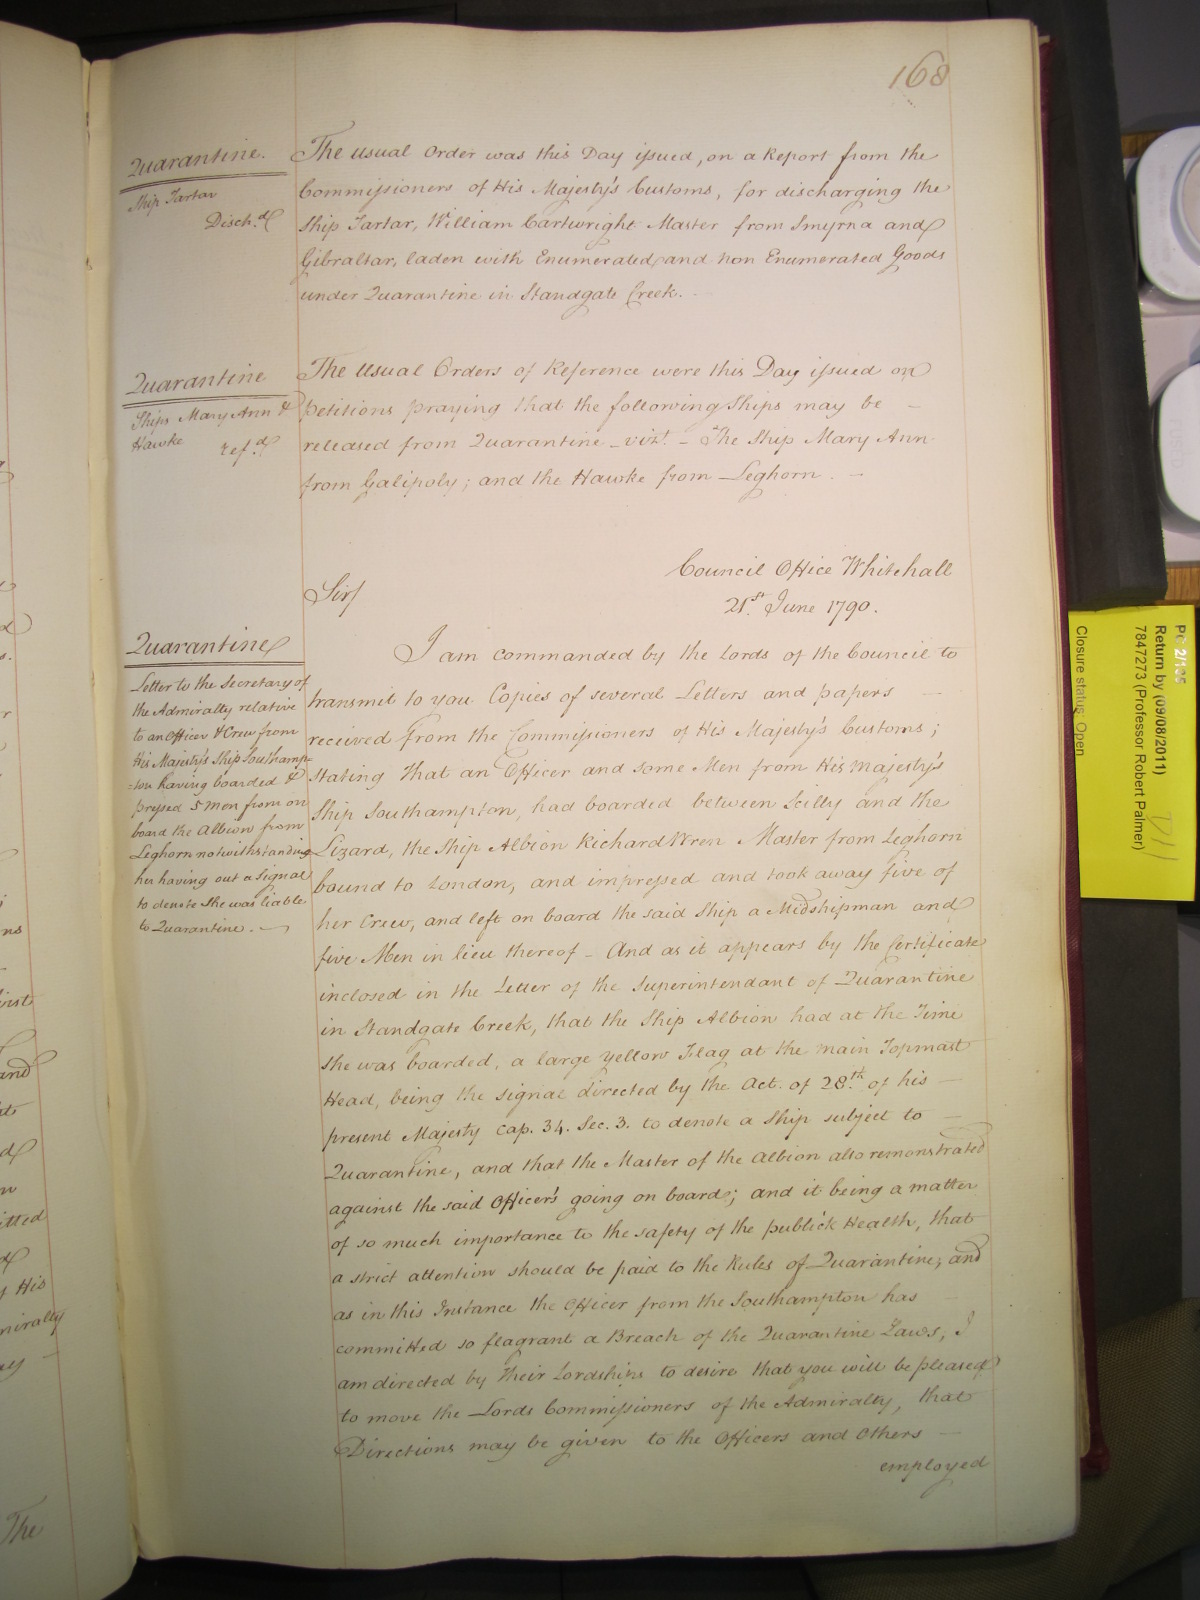 168
Quarantine.
Ship Tartar
Disch.d
The usual Order was this Day issued, on a Report from the
Commissioners of His Majesty's Customs, for discharging the
Ship Tartar, William Cartwright Master from Smyrna and
Gibraltar, laden with Enumerated and non Enumerated Goods
under Quarantine in Standgate Creek.
Quarantine
Ships Mary Ann &
Hawke
ref.d
The usual Orders of Reference were this Day issued on
petitions praying that the following Ships may be
released from Quarantine - vizt. - The Ship Mary Ann
from Galipoly; and the Hawke from Leghorn.
Council Office Whitehall
21.st June 1790.
Sir/
Quarantine
Letter to the Secretary of
the Admiralty relative
to an Officer & Crew from
His Majesty's Ship Southamp-
=ton having boarded &
pressed 5 men from on
board the Albion from
Leghorn notwithstanding
her having out a Signal
to denote She was liable
to Quarantine.
I am commanded by the Lords of the Council to
transmit to you Copies of several Letters and papers
received from the Commissioners of His Majesty's Customs;
stating that an Officer and some Men from His Majesty's
Ship Southampton, had boarded between Scilly and the
Lizard, the Ship Albion Richard Wren Master from Leghorn
bound to London, and impressed and took away five of
her Crew, and left on board the said Ship a Midshipman and
five Men in lieu thereof - And as it appears by the Certificate
inclosed in the Letter of the Superintendant of Quarantine
in Standgate Creek, that the Ship Albion had at the Time
she was boarded, a large yellow Flag at the main Topmast
Head, being the signal directed by the Act. of 28.th of his
present Majesty cap. 34. Sec. 3. to denote a Ship subject to
Quarantine, and that the Master of the Albion also remonstrated
against the said Officer's going on board; and it being a matter
of so much importance to the safety of the publick Health, that
a strict attention should be paid to the Rules of Quarantine; and
as in this Instance the Officer from the Southampton has
committed so flagrant a Breach of the Quarantine Laws, I
am directed by their Lordships to desire that you will be pleased
to move the Lords Commissioners of the Admiralty, that
Directions may be given to the Officers and Others
employed
The
PC 2/135
Return by (09/08/2011)
7847273 (Professor Robert Palmer)
Closure status: Open